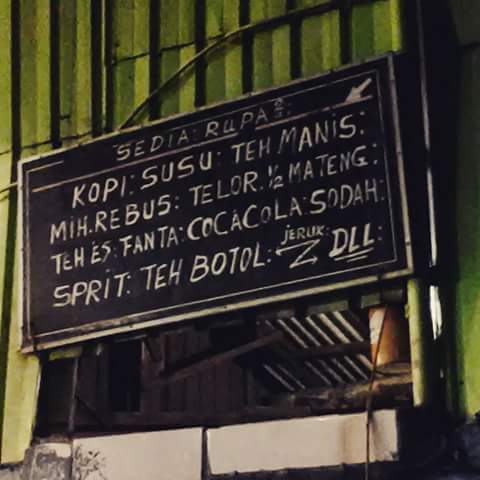 SEDIA: RUPA2:
KOPI: SUSU: TEH MANIS:
MIH. REBUS: TELOR. ½ MATENG:
TEH ES: FANTA: COCACOLA: SODAH:
SPRIT: TEH BOTOL: JERUK: DLL: